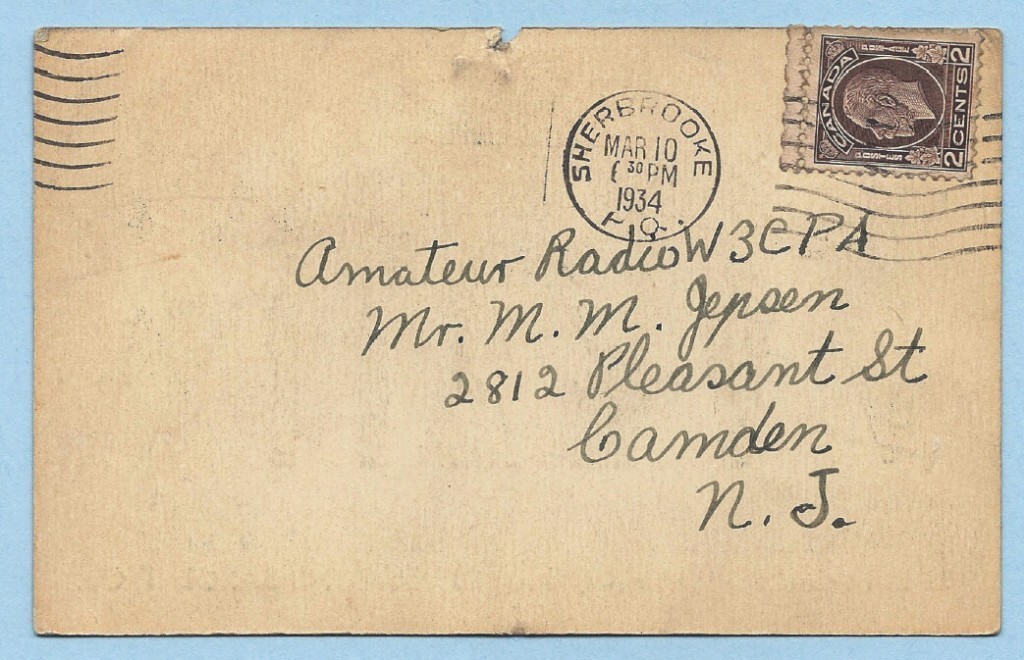 SHERBROOKE
MAR 10
6 30 PM
1934
P.Q.
CANADA
POSTES
POSTAGE
2 CENTS 2
Amateur Radio W3CPA
Mr. M. M. Jepsen
2812 Pleasant St
Camden
N. J.